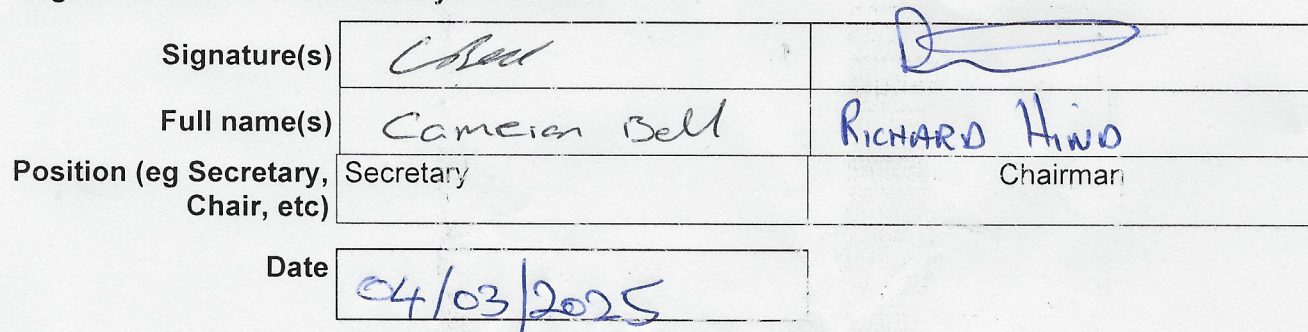 Signature(s) CBell
Full name(s) Cameron Bell RICHARD HIND
Position (eg Secretary, Secretary Chairman
Chair, etc)
Date 04/03/2025